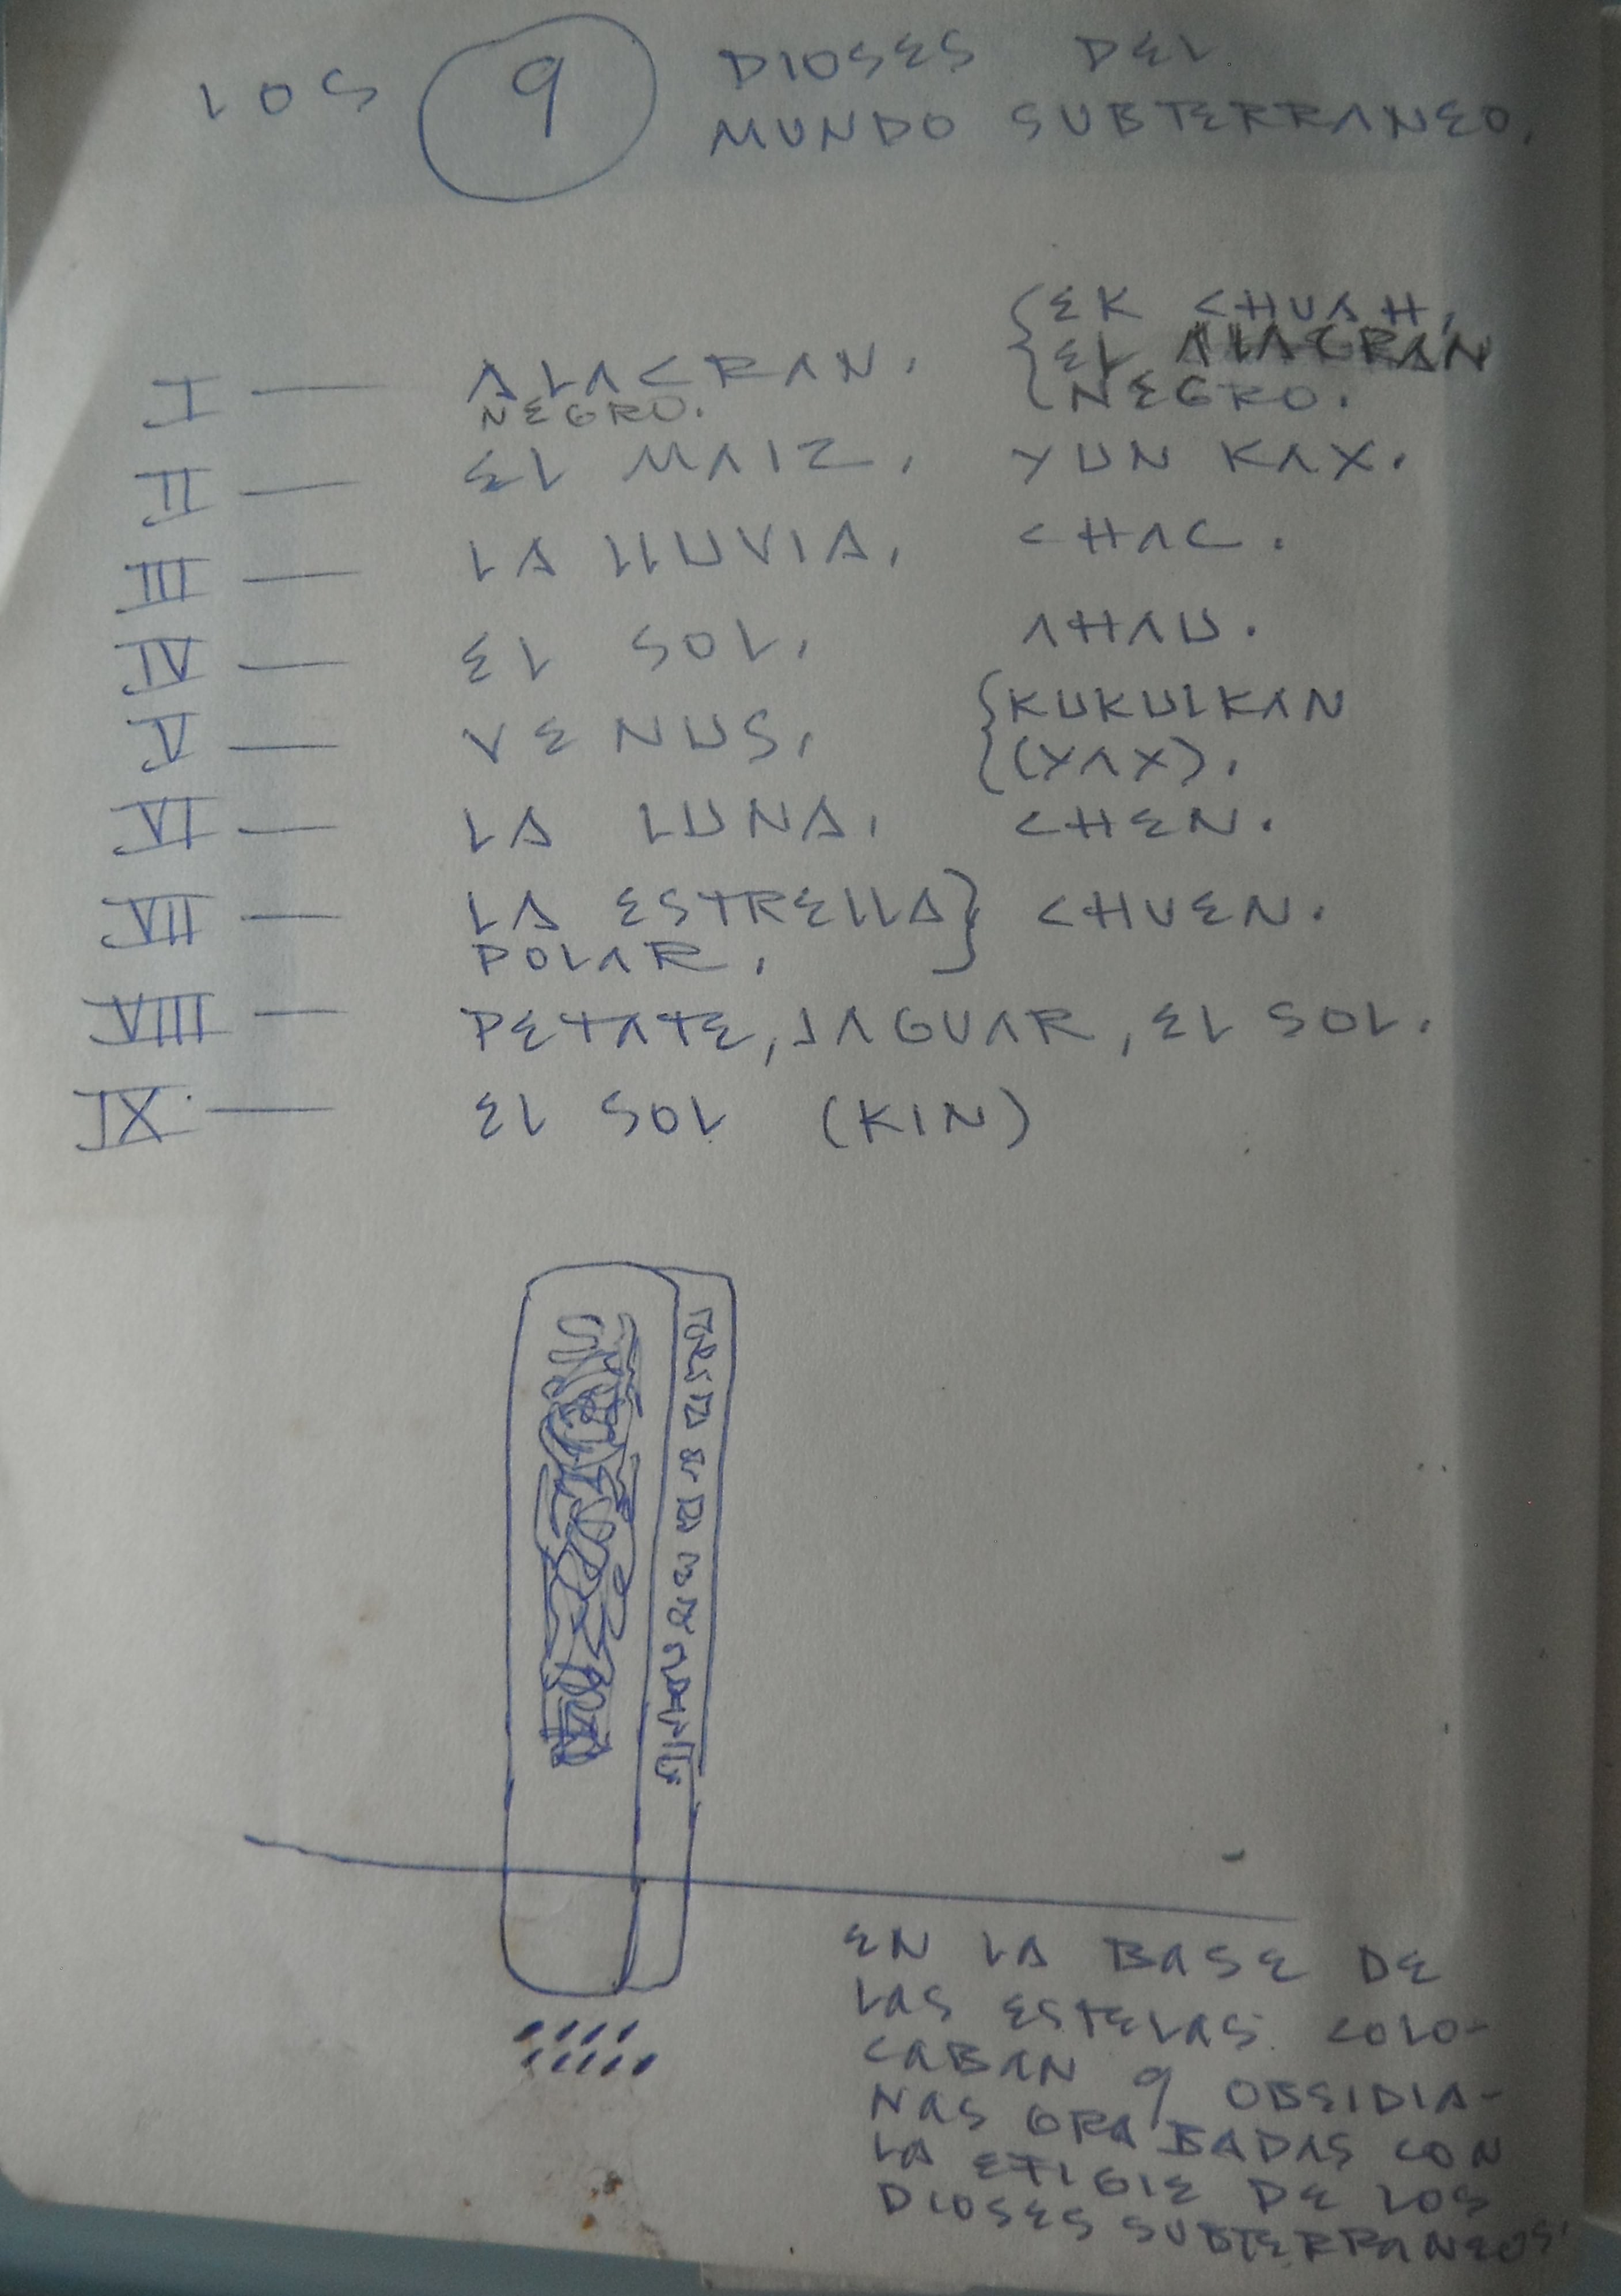 LOS 9 DIOSES DEL
MUNDO SUBTERRANEO.
I — ALACRAN, {EK CHUAH,
NEGRO. {EL ALACRAN
{NEGRO.
II — EL MAIZ, YUN KAX.
III — LA LLUVIA, CHAC.
IV — EL SOL, AHAU.
V — VENUS, {KUKULKAN
{(YAX).
VI — LA LUNA, CHEN.
VII — LA ESTRELLA} CHUEN.
POLAR, }
VIII — PETATE, JAGUAR, EL SOL.
IX — EL SOL (KIN)
EN LA BASE DE
LAS ESTELAS COLO-
CABAN 9 OBSIDIA-
NAS GRABADAS CON
LA EFIGIE DE LOS
DIOSES SUBTERRANEOS.